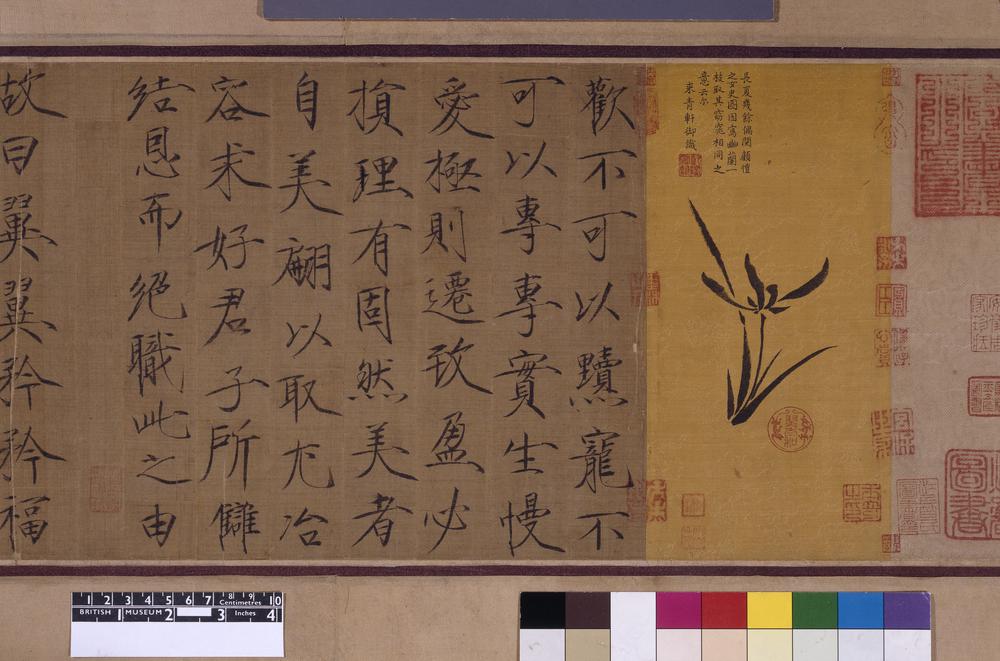 長夏幾餘偶閱顧愷
之女史圖因寫幽蘭一
枝取其窈窕相同之
意云尔
來青軒御識
歡不可以黷寵不
可以專專實生慢
愛極則遷致盈必
損理有固然美者
自美翩以取尤冶
容求好君子所讎
結恩而絕職此之由
故曰翼翼矜矜福
1 2 3 4 5 6 7 8 9 10
Centimetres
BRITISH 1 MUSEUM 2 3 Inches 4